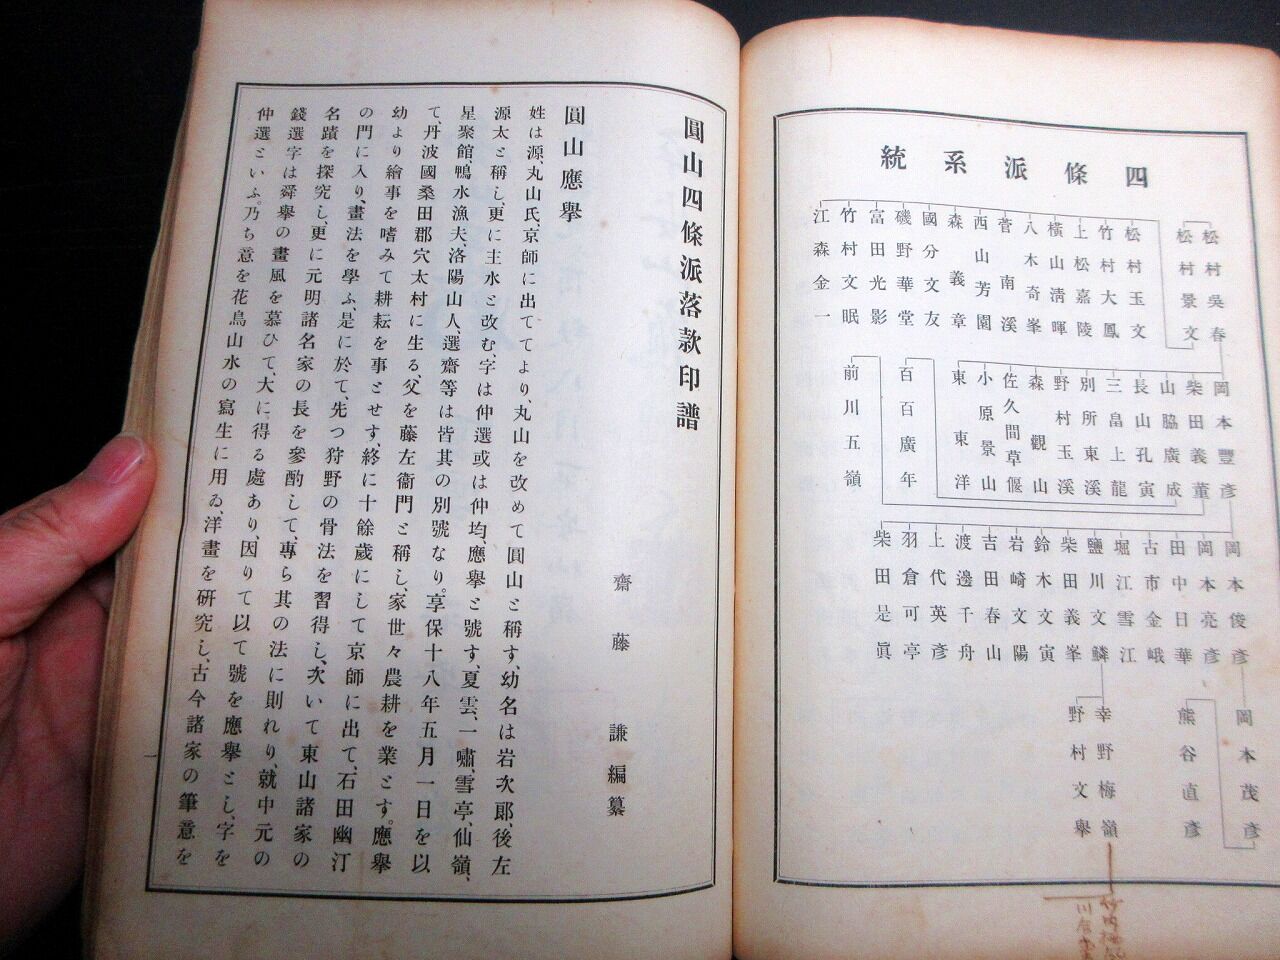 四條派系統
松村吳春
松村景文
松村玉文
竹村大鳳
上松嘉陵
橫山淸暉
八木奇峯
菅南溪
西山芳園
森義章
國分文友
磯野華堂
富田光影
竹村文眠
江森金一
岡本豐彥
柴田義董
山脇廣成
長山孔寅
三畠上龍
別所東溪
野村玉溪
森觀山
佐久間草偃
小原景山
東東洋
百百廣年
前川五嶺
岡本俊彥
岡本亮彥
田中日華
古市金峨
堀江雪江
鹽川文鱗
柴田義峯
鈴木文寅
岩崎文陽
吉田春山
渡邊千舟
上代英彥
羽倉可亭
柴田是眞
岡本茂彥
熊谷直彥
幸野梅嶺
野村文擧
圓山四條派落款印譜
齋藤謙編纂
圓山應擧
姓は源、丸山氏、京師に出てゝより、丸山を改めて圓山と稱す、幼名は岩次郞、後左
源太と稱し、更に主水と改む、字は仲選或は仲均、應擧と號す、夏雲、一嘯、雪亭、仙嶺、
星聚館、鴨水漁夫、洛陽山人、選齋等は皆其の別號なり。享保十八年五月一日を以
て、丹波國桑田郡穴太村に生る、父を藤左衞門と稱し、家世々農耕を業とす。應擧
幼より繪事を嗜みて耕耘を事とせす、終に十餘歲にして京師に出て、石田幽汀
の門に入り、畫法を學ふ、是に於て、先つ狩野の骨法を習得し、次いて東山諸家の
名蹟を探究し、更に元明諸名家の長を參酌して、專ら其の法に則れり、就中元の
錢選字は舜擧の畫風を慕ひて、大に得る處あり、因りて以て號を應擧とし、字を
仲選といふ。乃ち意を花鳥山水の寫生に用ゐ、洋畫を研究し、古今諸家の筆意を
一